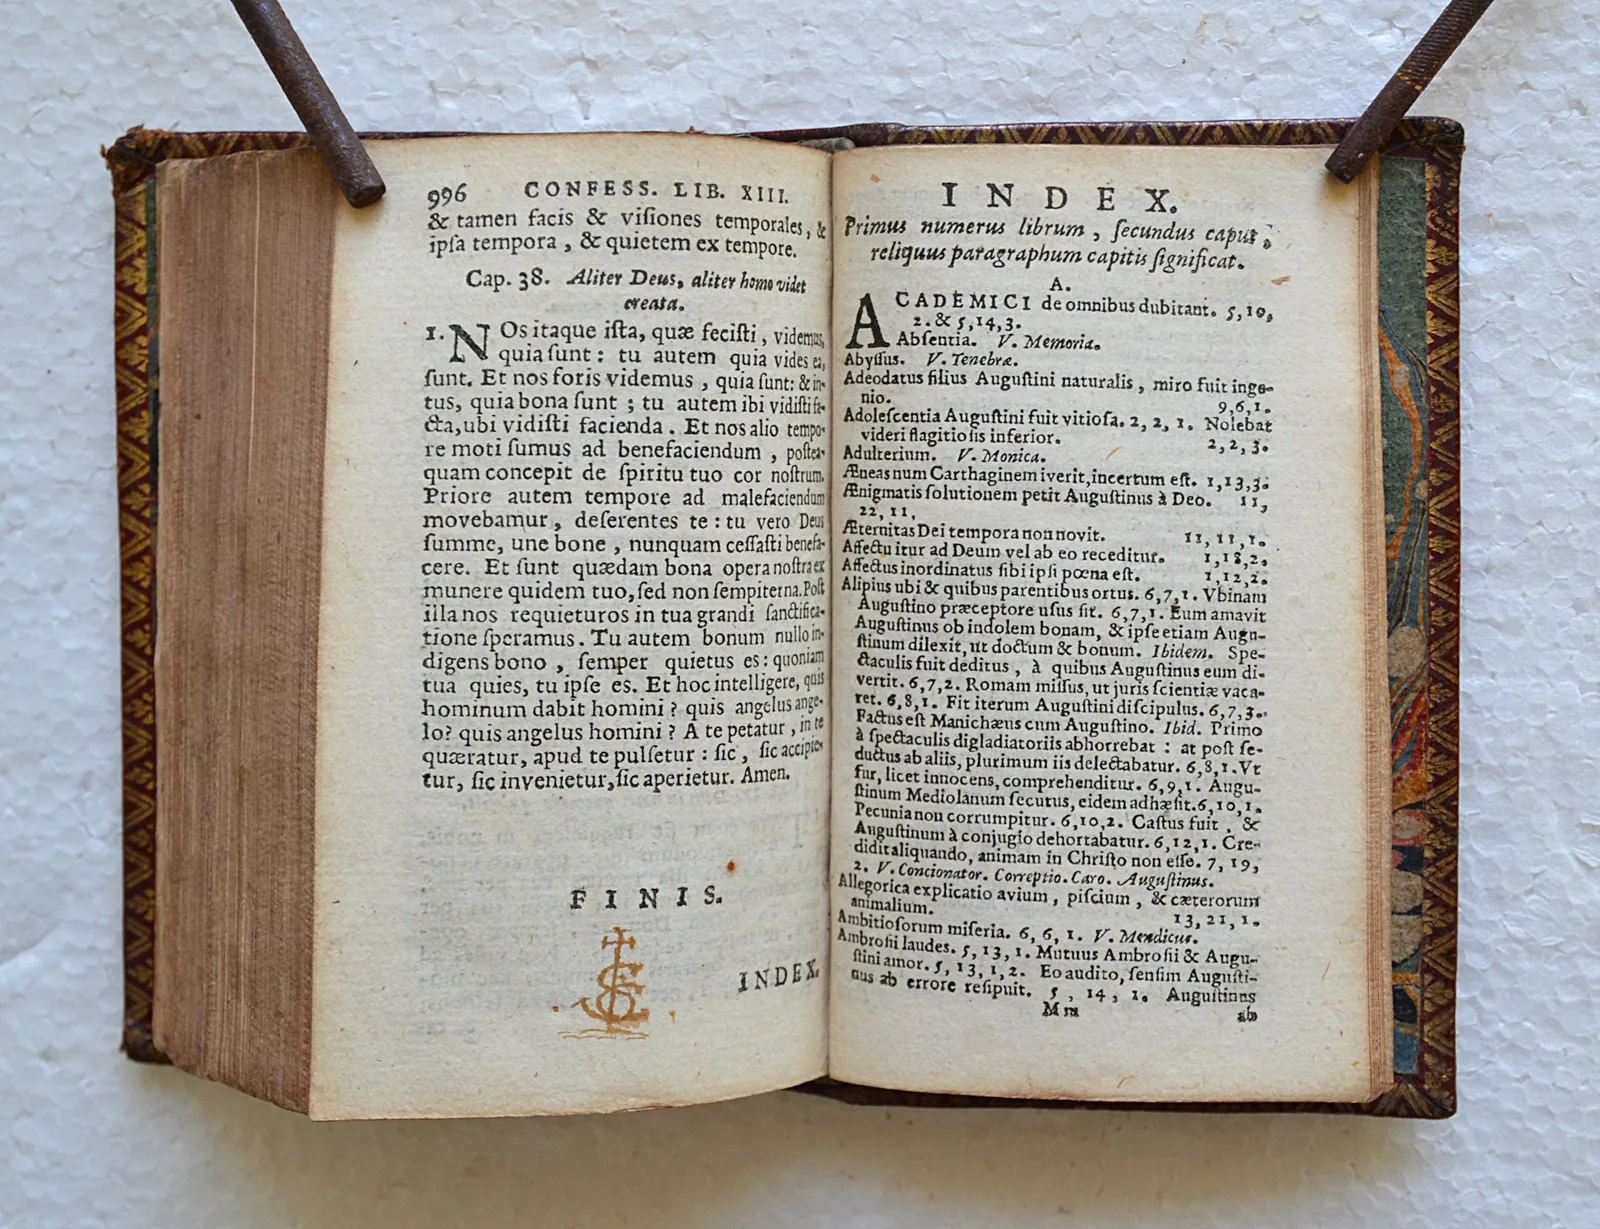 996 CONFESS. LIB. XIII.
& tamen facis & visiones temporales, &
ipsa tempora, & quietem ex tempore.
Cap. 38. Aliter Deus, aliter homo videt
creata.
1. NOs itaque ista, quæ fecisti, videmus,
quia sunt: tu autem quia vides ea,
sunt. Et nos foris videmus, quia sunt: & in-
tus, quia bona sunt; tu autem ibi vidisti fa-
cta, ubi vidisti facienda. Et nos alio tempo-
re moti sumus ad benefaciendum, postea-
quam concepit de spiritu tuo cor nostrum.
Priore autem tempore ad malefaciendum
movebamur, deserentes te: tu vero Deus
summe, une bone, nunquam cessasti benefa-
cere. Et sunt quædam bona opera nostra ex
munere quidem tuo, sed non sempiterna. Post
illa nos requieturos in tua grandi sanctifica-
tione speramus. Tu autem bonum nullo in-
digens bono, semper quietus es: quoniam
tua quies, tu ipse es. Et hoc intelligere, quis
hominum dabit homini? quis angelus ange-
lo? quis angelus homini? A te petatur, in te
quæratur, apud te pulsetur: sic, sic accipie-
tur, sic invenietur, sic aperietur. Amen.
FINIS.
INDEX.
INDEX.
Primus numerus librum, secundus caput,
reliquus paragraphum capitis significat.
A.
ACADEMICI de omnibus dubitant. 5, 10,
2. & 5, 14, 3.
Absentia. V. Memoria.
Abyssus. V. Tenebræ.
Adeodatus filius Augustini naturalis, miro fuit inge-
nio. 9, 6, 1.
Adolescentia Augustini fuit vitiosa. 2, 2, 1. Nolebat
videri flagitiosis inferior. 2, 2, 3.
Adulterium. V. Monica.
Æneas num Carthaginem iverit, incertum est. 1, 13, 3.
Ænigmatis solutionem petit Augustinus à Deo. 11,
22, 11,
Æternitas Dei tempora non novit. 11, 11, 1.
Affectu itur ad Deum vel ab eo receditur. 1, 18, 2.
Affectus inordinatus sibi ipsi pœna est. 1, 12, 2.
Alipius ubi & quibus parentibus ortus. 6, 7, 1. Vbinam
Augustino præceptore usus sit. 6, 7, 1. Eum amavit
Augustinus ob indolem bonam, & ipse etiam Augu-
stinum dilexit, ut doctum & bonum. Ibidem. Spe-
ctaculis fuit deditus, à quibus Augustinus eum di-
vertit. 6, 7, 2. Romam missus, ut juris scientiæ vaca-
ret. 6, 8, 1. Fit iterum Augustini discipulus. 6, 7, 3.
Factus est Manichæus cum Augustino. Ibid. Primo
à spectaculis digladiatoriis abhorrebat: at post se-
ductus ab aliis, plurimum iis delectabatur. 6, 8, 1. Vt
fur, licet innocens, comprehenditur. 6, 9, 1. Augu-
stinum Mediolanum secutus, eidem adhæsit. 6, 10, 1.
Pecunia non corrumpitur. 6, 10, 2. Castus fuit, &
Augustinum à conjugio dehortabatur. 6, 12, 1. Cre-
didit aliquando, animam in Christo non esse. 7, 19,
2. V. Concionator. Correptio. Caro. Augustinus.
Allegorica explicatio avium, piscium, & cæterorum
animalium. 13, 21, 1.
Ambitiosorum miseria. 6, 6, 1. V. Mendicus.
Ambrosii laudes. 5, 13, 1. Mutuus Ambrosii & Augu-
stini amor. 5, 13, 1, 2. Eo audito, sensim Augusti-
nus ab errore resipuit. 5, 14, 1. Augustinus
Mm ab